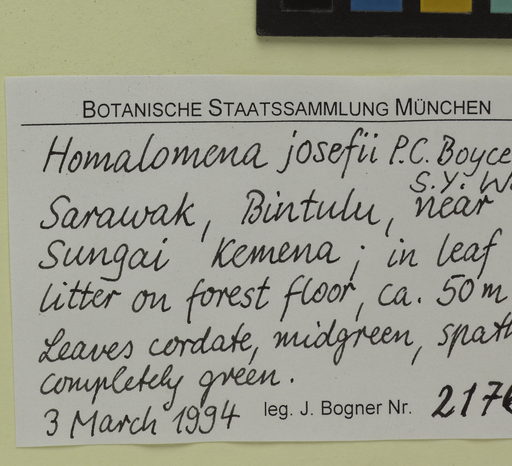 BOTANISCHE STAATSSAMMLUNG MÜNCHEN
Homalomena josefii P.C. Boyce
S.Y.
Sarawak, Bintulu, near
Sungai Kemena; in leaf
litter on forest floor, ca. 50 m
Leaves cordate, midgreen,
completely green.
3 March 1994 leg. J. Bogner Nr.